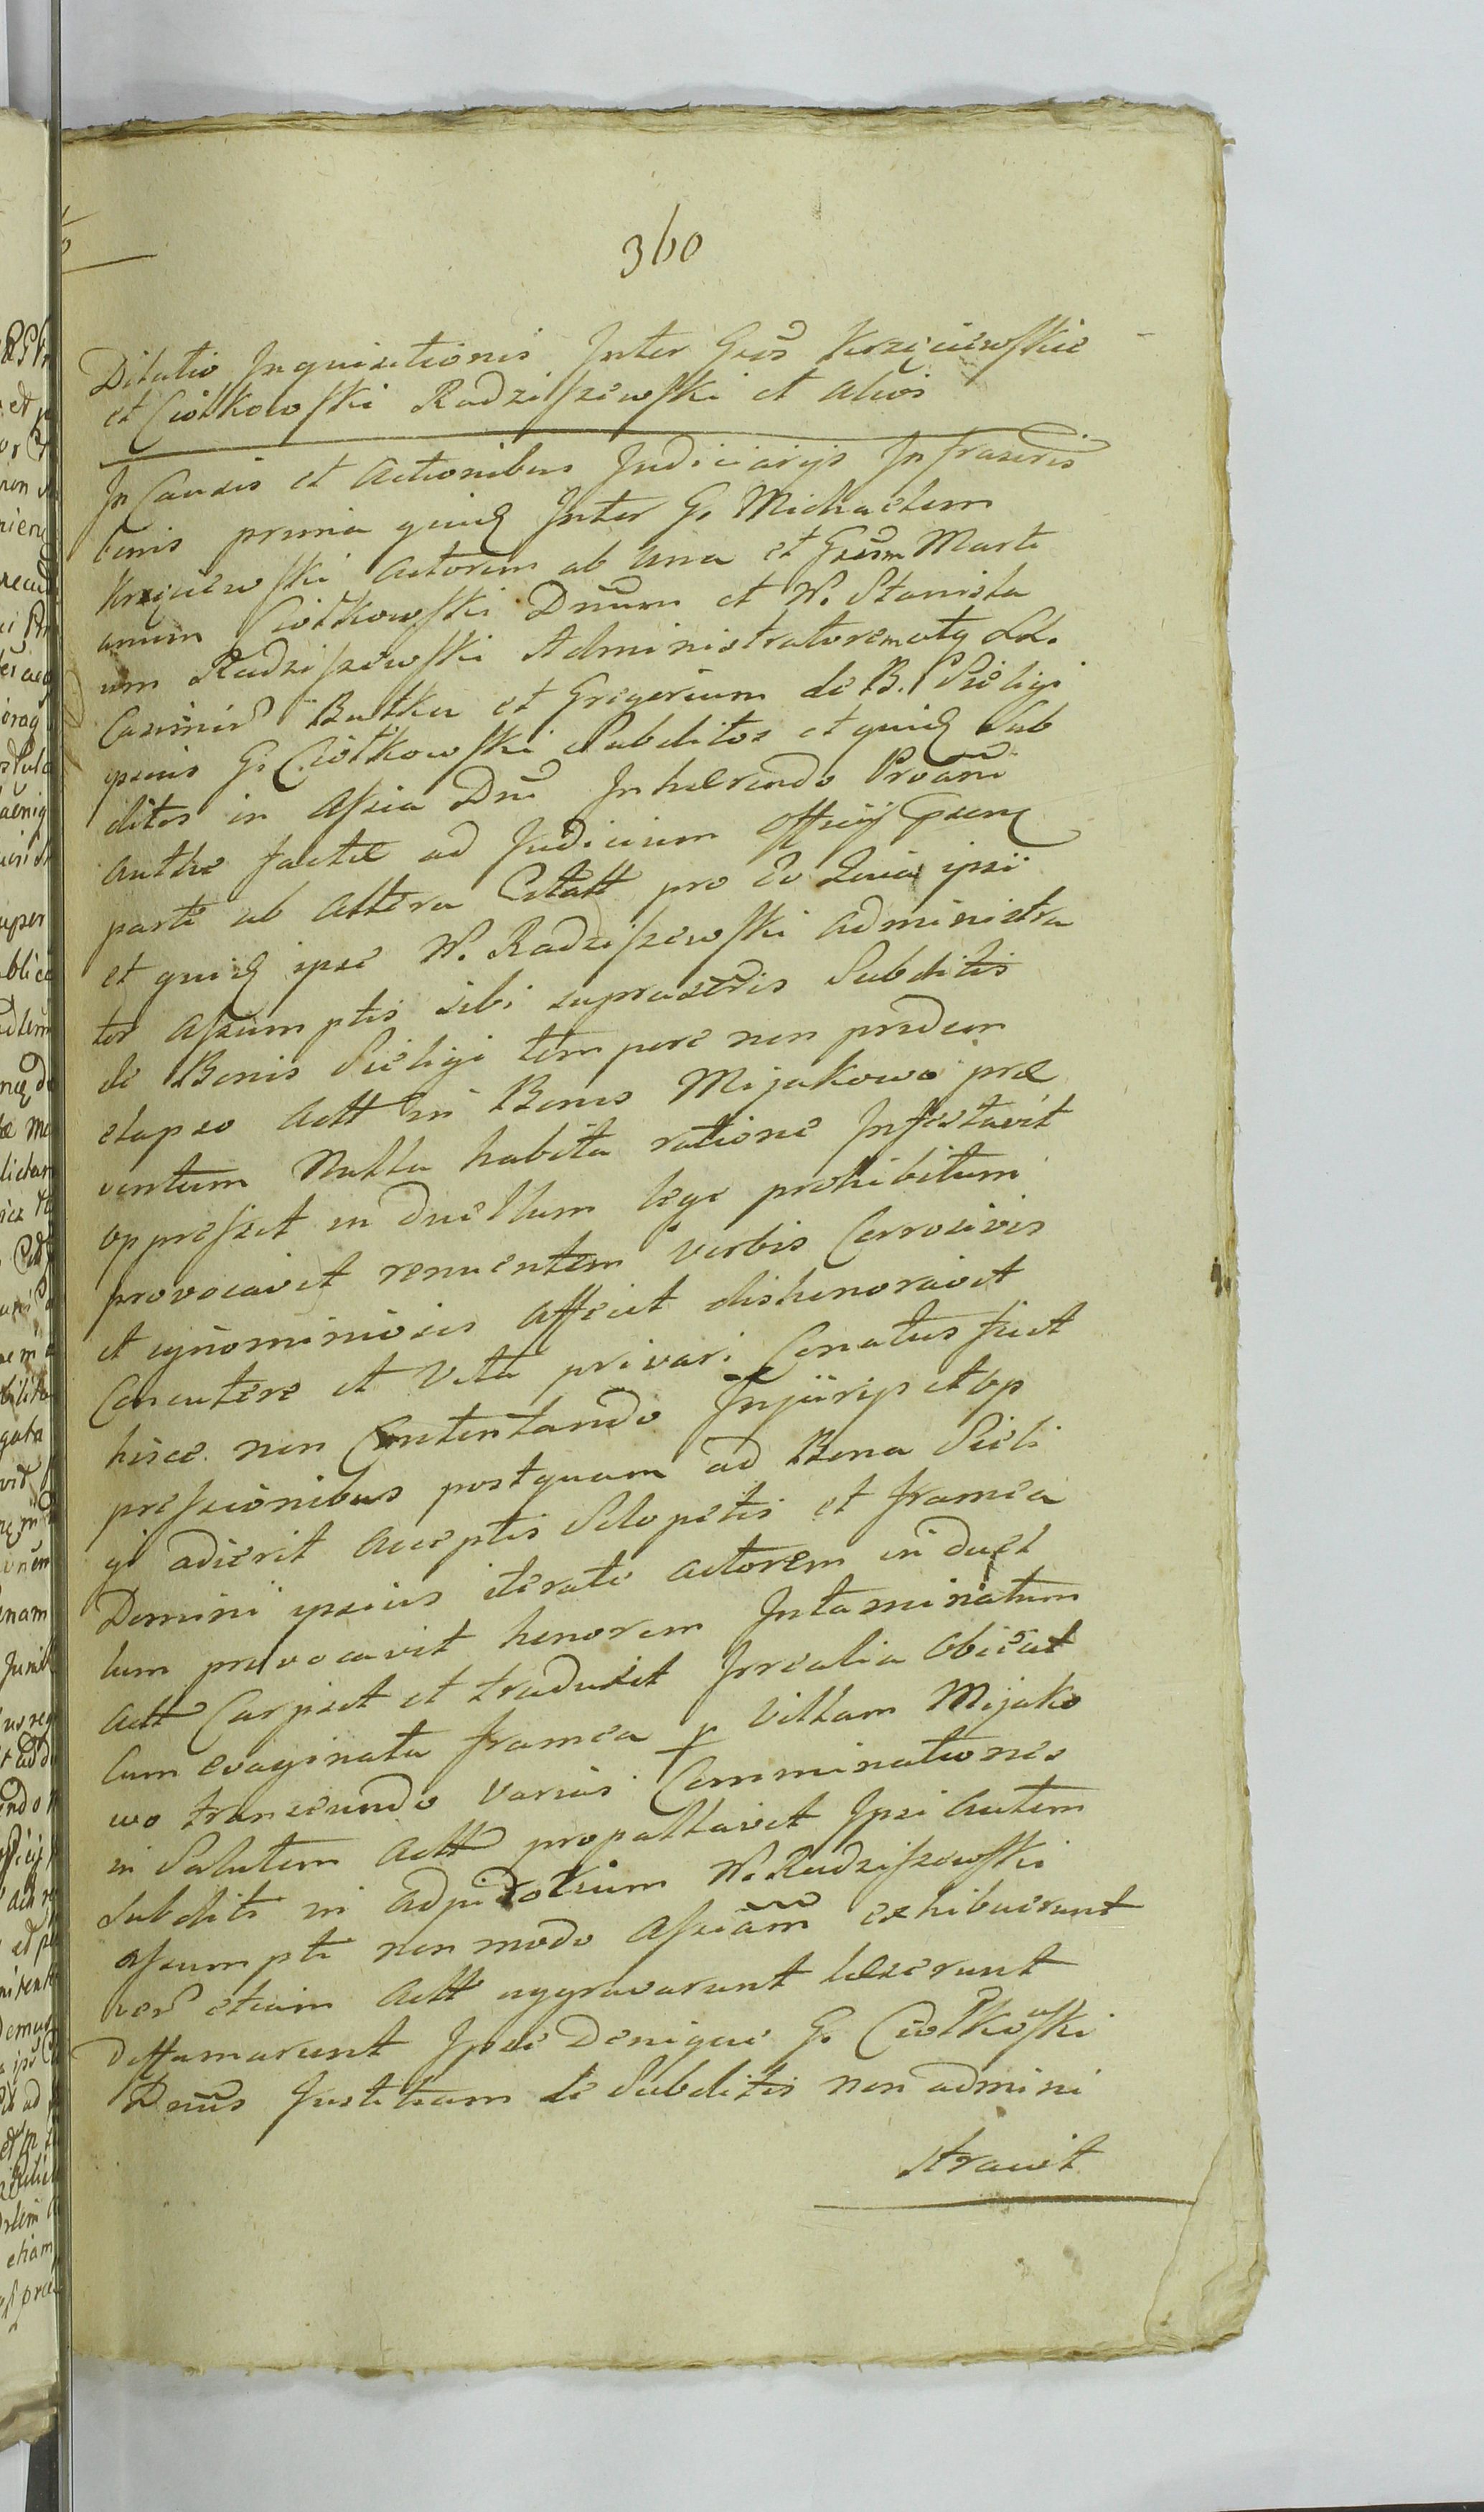 360
Dilatio Inquisitionis Inter Gsos Krzęciewskie
et Ciołkowski Radziszewski et alios
In Causis et Actionibus Judiciarijs Infrascris
benis prima quidę Inter G. Michaelem
Krzęciewski Actorem ab una et Gsum Marti
anum Ciołkowski Dnum et W. Stanisla
um Radziszewski Administratorem atq LL.
Casimir Butka et Gregorium de B. Sieligi
ipsius G. Ciołkowski Subditos et quidę Sub
ditos in Assia Dni Inhærendo Proāni
Anthe factæ ad Judicium Officij
parte ab Altera Citatt pro Eo Quia ipsi
et quidę ipse W. Radziszewski Administra
tor Assumptis sibi suprascris Subditis
de Bonis Sieligi tempore non pridem
elapso Actt in Bonis Mijakowo præ
ventum Nulla habita ratione Infestavit
oppressit in duellum lege prohibitum
provocavit renuentem verbis Corrosivis
et ignominiosis affecit dishonoravit
Concutere et Vita privari Conatus fuit
hisce non Contentando Injurijs et op
pressionibus postquam ad Bona Sieli
gi adierit acceptis Sclopetis et framea
Domini ipsius iterato Actorem in duel
lum provocavit honorem Intaminatum
Actt Carpsit et traduxit Irrealia Obiecit
Cum evaginata framea p Villam Mijako
wo transeundo varias Comminationes
in Salutem Actt propallavit Ipsi Autem
Subditi in W. Radziszewski
assumpti non modo Assiām exhibuerunt
ver etiam Actt aggravarunt læserunt
Diffamarunt Ipse Denique G. Ciołkowski
Dnus Justitiam de Subditis non admini
stravit